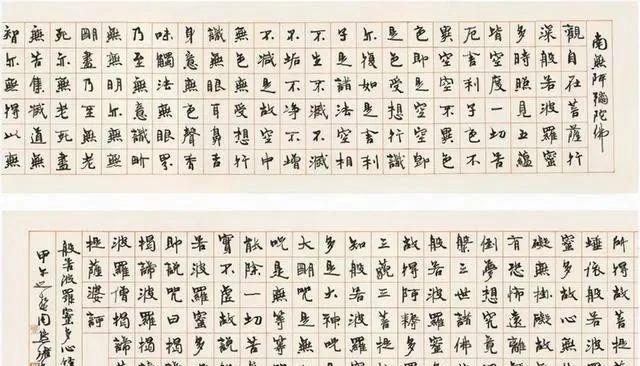 南無阿彌陀佛
觀自在菩薩行
深般若波羅蜜
多時照見五蘊
皆空度一切苦
厄舍利子色不
異空空不異色
色即是空空即
是色受想行識
尓復如是舍利
子是諸法空相
不生不滅不
不垢不净不增
不減是故空中
無色無受想行
識無眼耳鼻舌
身意無色聲香
味觸法無眼界
乃至無意識界
無無明尓無無
明盡乃至無老
死尓無老死盡
無苦集滅道無
智尓無得以無
所得故菩提
埵依般若波
蜜多故心無
礙無罣礙故
有恐怖遠離
倒夢想究竟
槃三世諸佛
般若波羅蜜
故得阿耨多
三藐三菩提
知般若波羅
多是大神咒
大明咒是無
咒是無等等
能除一切苦
實不虛故說
若波羅蜜多
即說咒曰揭
諦揭諦波羅
波羅僧揭諦
提薩婆訶
般若波羅蜜多心經
甲午